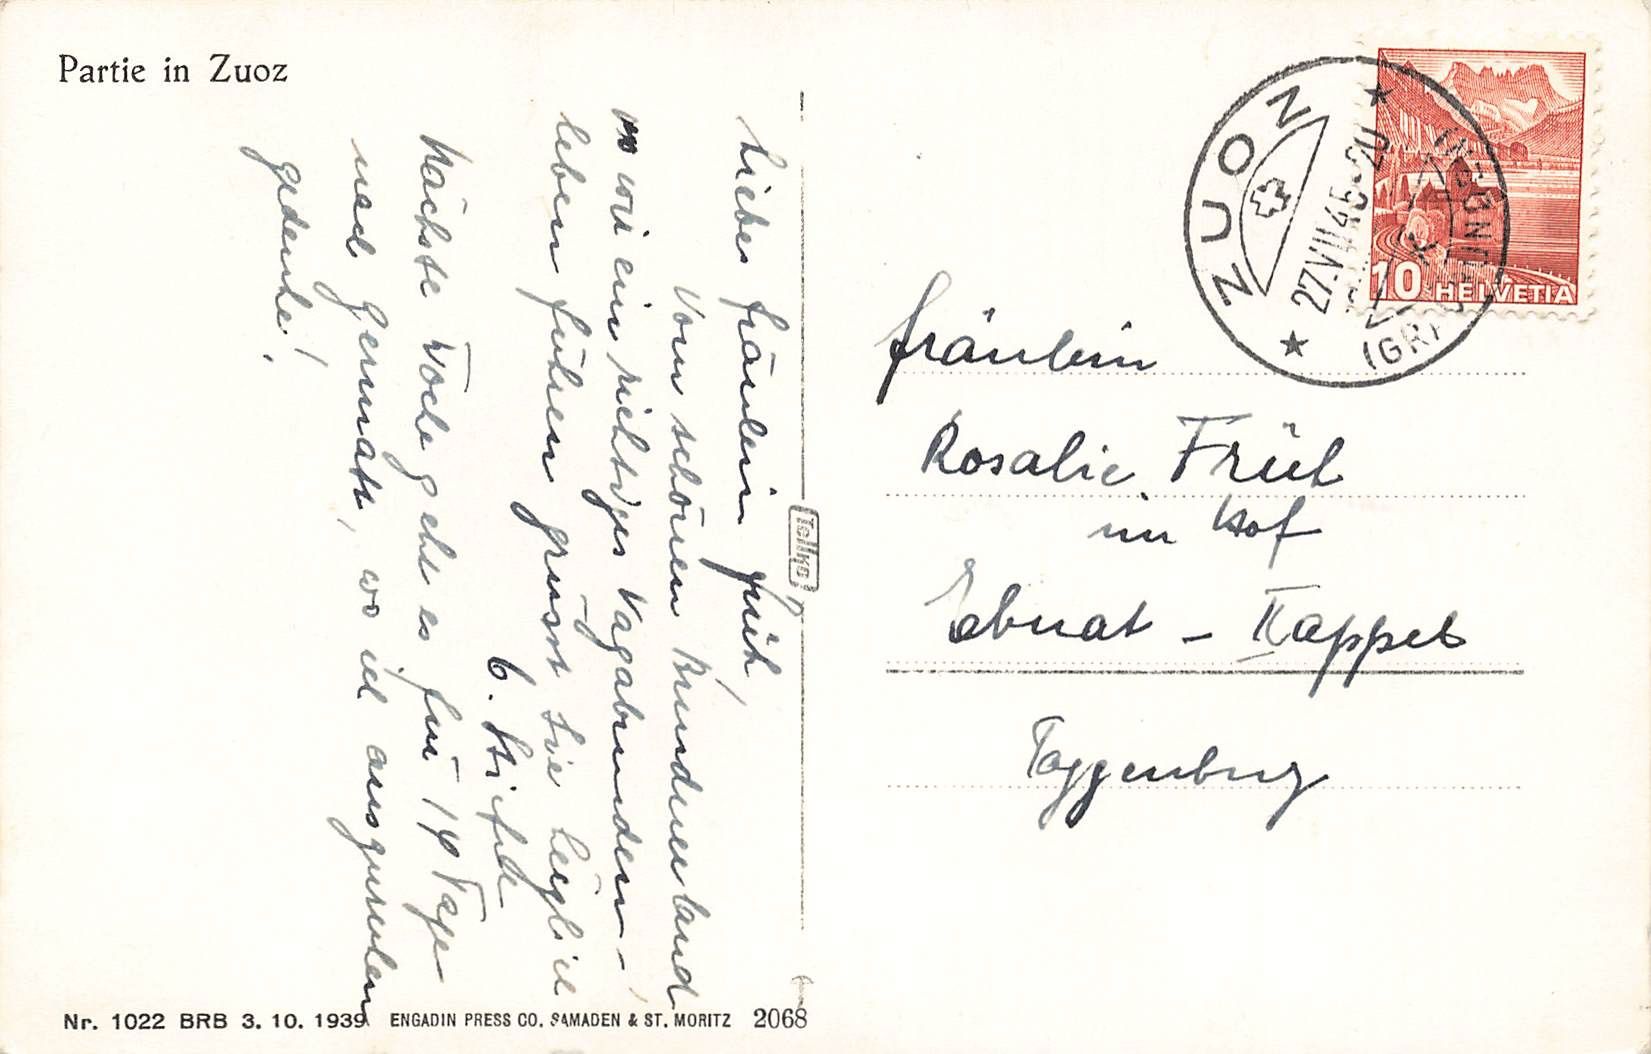 Partie in Zuoz
Liebes Fräulein Früh,
Vom schönen Bündnerland
wo wir ein richtiges Vagabunden-
leben führen grüsst Sie herzlich
G.
Nächste Woche geht es für 14 Tage
nach Zermatt, wo ich auszuruhen
gedenke!
Tellko
ZUOZ
27.VII.45-20
(GRAUBÜNDEN)
10 HELVETIA
Fräulein
Rosalie Früh
im Hof
Ebnat - Kappel
Toggenburg
Nr. 1022 BRB 3. 10. 1939 ENGADIN PRESS CO. SAMADEN & ST. MORITZ 2068